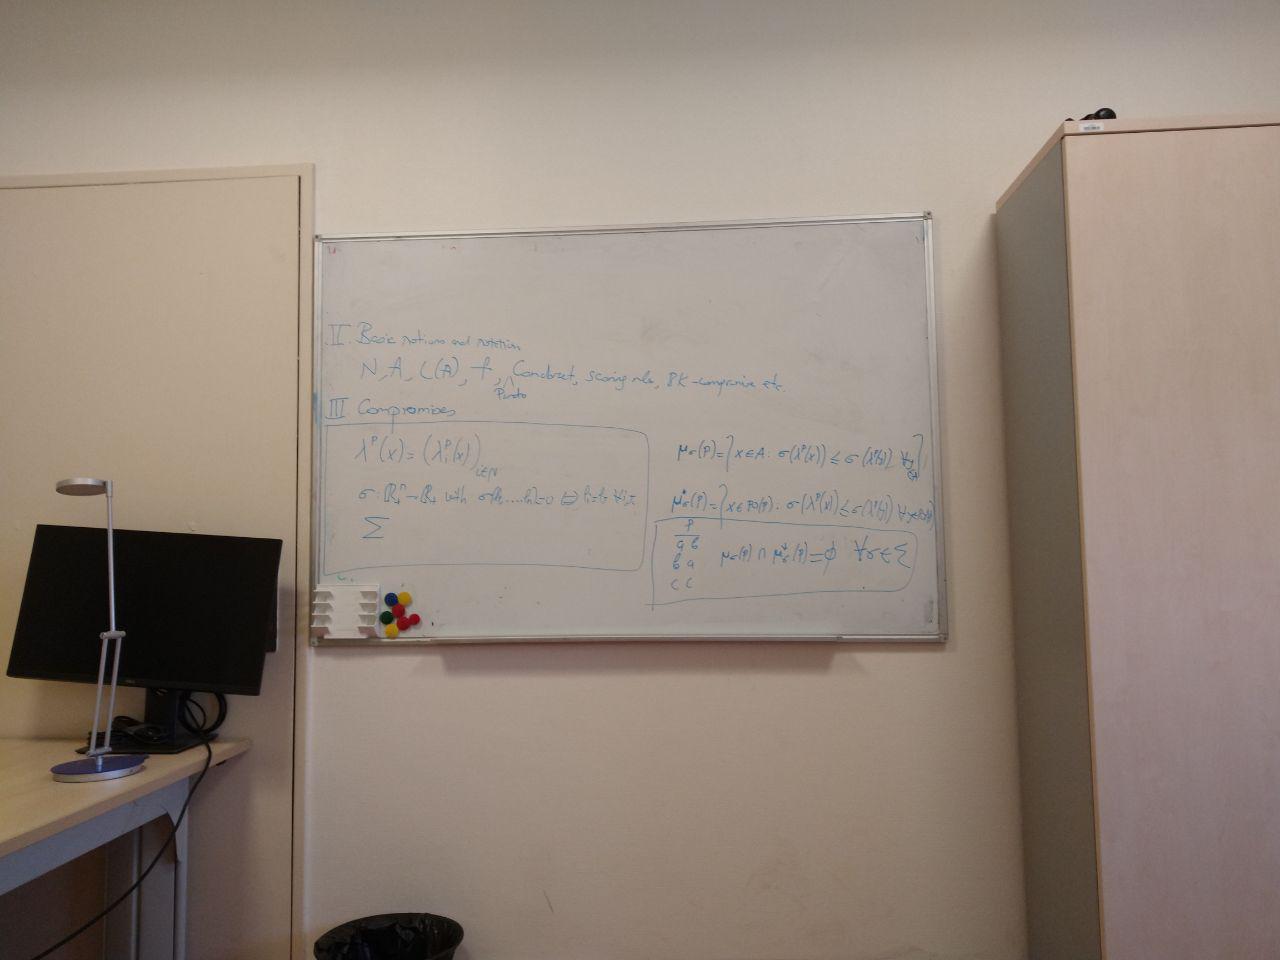 II. Basic notions and notation
N, A, L(A), f, Condorcet, scoring rule, BK-compromise etc.
Pareto
III Compromises
λᴾ(x) = (λᵢᴾ(x))ᵢ∈N
σ: ℝ₊ⁿ → ℝ₊ with
Σ
μσ(P) = {x∈A: σ(λᴾ(x)) ≤ σ(λᴾ(y)) ∀y∈A}
μ*σ(P) = {x∈PO(P): σ(λᴾ(x)) ≤ σ(λᴾ(y)) ∀y∈PO(P)}
P
a b
b a
c c
μσ(P) ∩ μ*σ(P) = ∅ ∀σ∈Σ